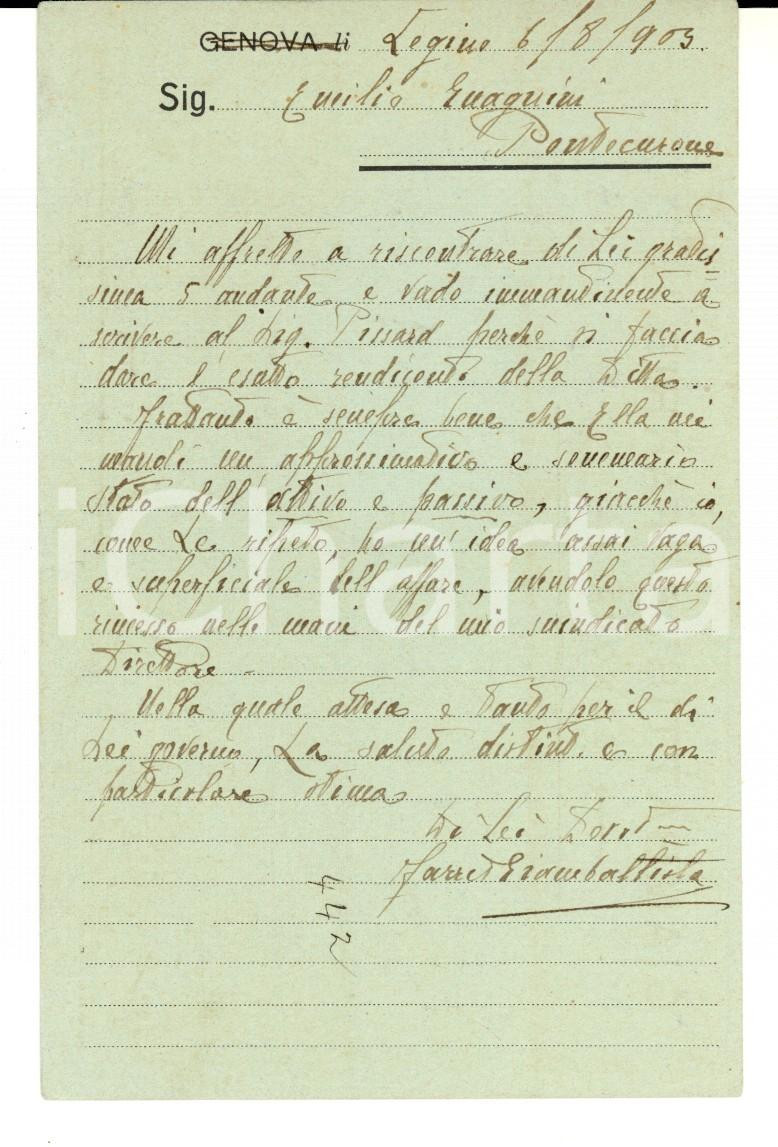 GENOVA li Legino 6/8/903.
Sig. Emilio Guagnini
Pontecurone
Mi affretto a riscontrare di Lei gradis=
sima 5 andante e vado immantinente a
scrivere al Sig. Pissard perchè si faccia
dare l'esatto rendiconto della Ditta.
Frattanto è sempre bene che Ella mi
mandi un approssimativo e sommario
stato dell'attivo e passivo, giacchè io,
come Le ripeto, ho un'idea assai vaga
e superficiale dell'affare, avendolo questo
rimesso nelle mani del mio suindicato
Direttore -
Nella quale attesa e tanto per il di
Lei governo, La saluto distint. e con
particolare stima
Di Lei Devot
Giambattista
442
iCharta